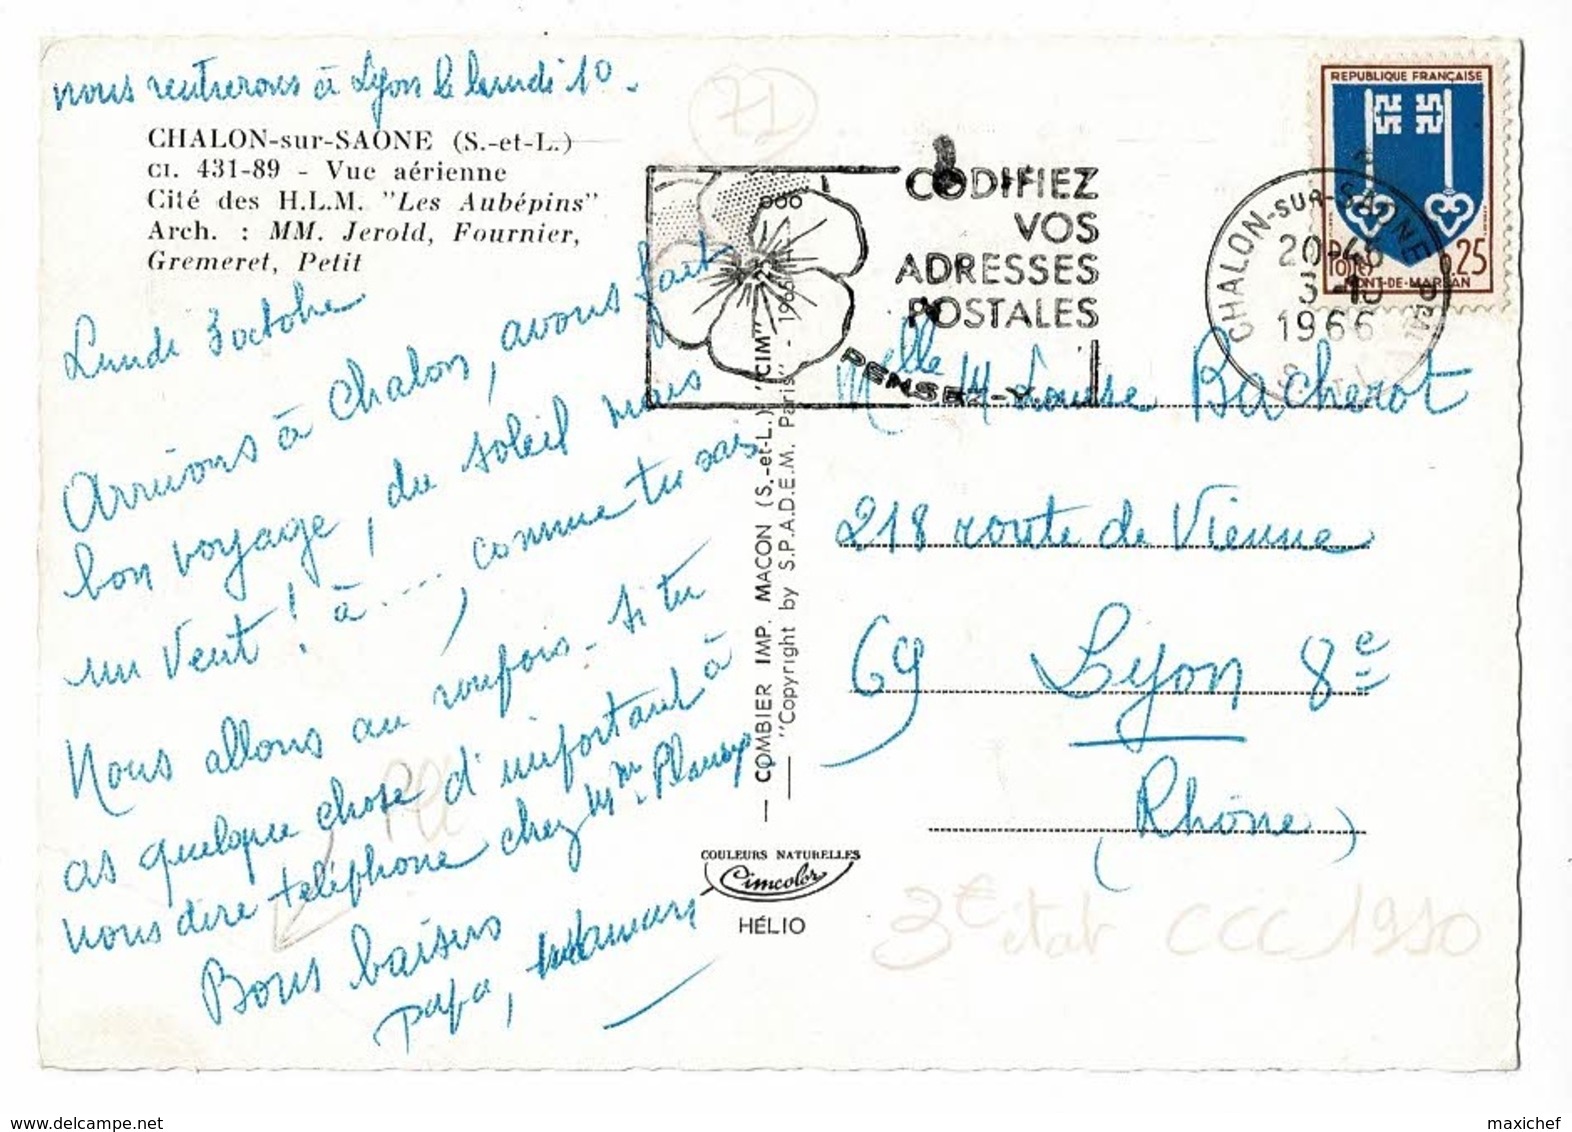 nous rentrerons à Lyon le lundi 10.
CHALON-sur-SAONE (S.-et-L.)
CI. 431-89 - Vue aérienne
Cité des H.L.M. "Les Aubépins"
Arch. : MM. Jerold, Fournier,
Gremeret, Petit
Lundi 3 octobre
Arrivons à Chalon, avons fait
bon voyage, du soleil mais
un vent ! à ...., comme tu sais
Nous allons au - si tu
as quelque chose d'important à
nous dire téléphone chez Mme
Bons baisers
papa, maman
COMBIER IMP. MACON (S.-et-L.) "CIM"
"Copyright by S.P.A.D.E.M. Paris" - 1965
COULEURS NATURELLES
Cimcolor
HÉLIO
71
CODIFIEZ
VOS
ADRESSES
POSTALES
PENSEZ-Y
REPUBLIQUE FRANÇAISE
POSTES
0,25
MONT-DE-MARSAN
CHALON-SUR-SAONE
20H45
3-10
1966
Melle M. Louise Bacherot
218 route de Vienne
69 Lyon 8e
(Rhône)
3e état CCC 1910
maxichef